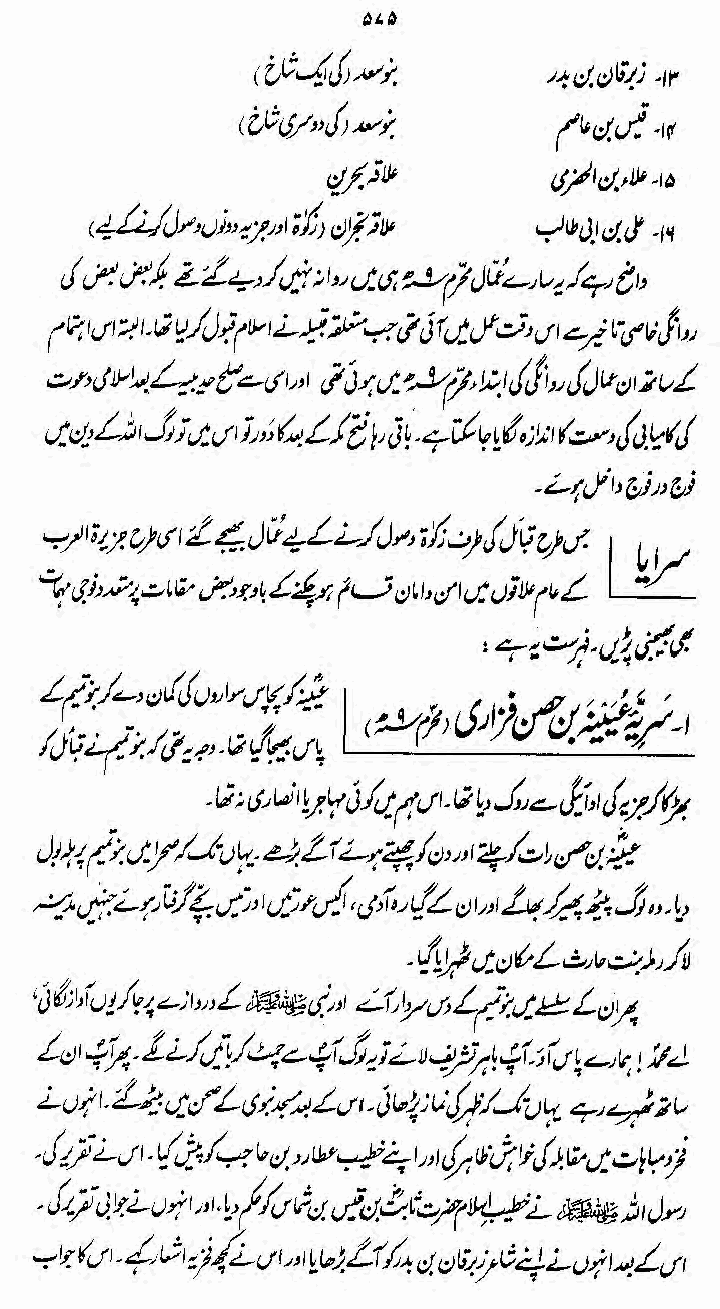 ۵۷۵
۱۳- زبرقان بن بدر بنو سعد (کی ایک شاخ)
۱۴- قیس بن عاصم بنو سعد (کی دوسری شاخ)
۱۵- علاء بن الحضرمی علاقہ بحرین
۱۶- علی بن ابی طالب علاقہ نجران (زکوٰۃ اور جزیہ دونوں وصول کرنے کے لیے)
واضح رہے کہ یہ سارے عُمّال محرّم ۹ھ ہی میں روانہ نہیں کر دیے گئے تھے بلکہ بعض بعض کی
روانگی خاصی تاخیر سے اس وقت عمل میں آئی تھی جب متعلقہ قبیلہ نے اسلام قبول کر لیا تھا۔ البتہ اس اہتمام
کے ساتھ ان عمال کی روانگی کی ابتداء محرّم ۹ھ میں ہوئی تھی اور اسی سے صلح حدیبیہ کے بعد اسلامی دعوت
کی کامیابی کی وسعت کا اندازہ لگایا جا سکتا ہے۔ باقی رہا فتح مکہ کے بعد کا دَور تو اس میں تو لوگ اللہ کے دین میں
فوج در فوج داخل ہوئے۔
سرایا جس طرح قبائل کی طرف زکوٰۃ وصول کرنے کے لیے عُمّال بھیجے گئے اسی طرح جزیرۃ العرب
کے عام علاقوں میں امن و امان قائم ہو چکنے کے باوجود بعض مقامات پر متعدد فوجی مہمات
بھی بھیجنی پڑیں۔ فہرست یہ ہے :
۱- سَرِیَّہ عُیَیْنَہ بن حصن فزاری (محرّم ۹ھ) عیینہؓ کو پچاس سواروں کی کمان دے کر بنو تمیم کے
پاس بھیجا گیا تھا۔ وجہ یہ تھی کہ بنو تمیم نے قبائل کو
بھڑکا کر جزیہ کی ادائیگی سے روک دیا تھا۔ اس مہم میں کوئی مہاجر یا انصاری نہ تھا۔
عیینہؓ بن حصن رات کو چلتے اور دن کو چھپتے ہوئے آگے بڑھے۔ یہاں تک کہ صحرا میں بنو تمیم پر ہلہ بول
دیا۔ وہ لوگ پیٹھ پھیر کر بھاگے اور ان کے گیارہ آدمی، اکیس عورتیں اور تیس بچّے گرفتار ہوئے جنہیں مدینہ
لا کر رملہ بنت حارث کے مکان میں ٹھہرایا گیا۔
پھر ان کے سلسلے میں بنو تمیم کے دس سردار آئے اور نبی ﷺ کے دروازے پر جا کر یوں آواز لگائی،
اے محمدؐ! ہمارے پاس آؤ۔ آپؐ باہر تشریف لائے تو یہ لوگ آپؐ سے چمٹ کر باتیں کرنے لگے۔ پھر آپؐ ان کے
ساتھ ٹھہرے رہے یہاں تک کہ ظہر کی نماز پڑھائی۔ اس کے بعد مسجد نبوی کے صحن میں بیٹھ گئے۔ انہوں نے
فخر و مباہات میں مقابلہ کی خواہش ظاہر کی اور اپنے خطیب عطارد بن حاجب کو پیش کیا۔ اس نے تقریر کی۔
رسول اللہ ﷺ نے خطیبِ اسلام حضرت ثابتؓ بن قیس بن شماس کو حکم دیا، اور انہوں نے جوابی تقریر کی۔
اس کے بعد انہوں نے اپنے شاعر زبرقان بن بدر کو آگے بڑھایا اور اس نے کچھ فخریہ اشعار کہے۔ اس کا جواب